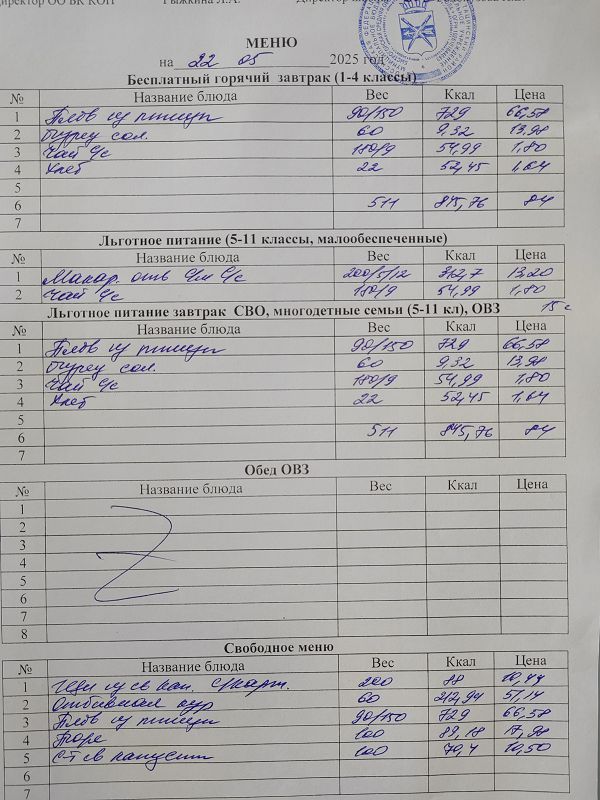 директор ОО ВК КОП Рыжкина Л.А. Директор
МЕНЮ
на 22 05 2025 год
Бесплатный горячий завтрак (1-4 классы)
№ Название блюда Вес Ккал Цена
1 Плов из птицы 90/150 729 66,58
2 Огурец сол. 60 9,32 13,98
3 Чай с/с 180/9 54,99 1,80
4 Хлеб 22 52,45 1,64
5
6 511 845,76 84
7
Льготное питание (5-11 классы, малообеспеченные)
№ Название блюда Вес Ккал Цена
1 Макар. отв с/м с/с 200/5/12 262,7 13,20
2 Чай с/с 180/9 54,99 1,80
Льготное питание завтрак СВО, многодетные семьи (5-11 кл), ОВЗ 15
№ Название блюда Вес Ккал Цена
1 Плов из птицы 90/150 729 66,58
2 Огурец сол. 60 9,32 13,98
3 Чай с/с 180/9 54,99 1,80
4 Хлеб 22 52,45 1,64
5
6 511 845,76 84
7
Обед ОВЗ
№ Название блюда Вес Ккал Цена
1
2
3
4
5
6
7
8
Свободное меню
№ Название блюда Вес Ккал Цена
1 Щи из св кап. с/карт. 200 88 10,44
2 Отбивная кур 60 212,94 51,14
3 Плов из птицы 90/150 729 66,58
4 Пюре 100 89,18 17,98
5 С-т св капусты 100 70,4 10,50
6
7